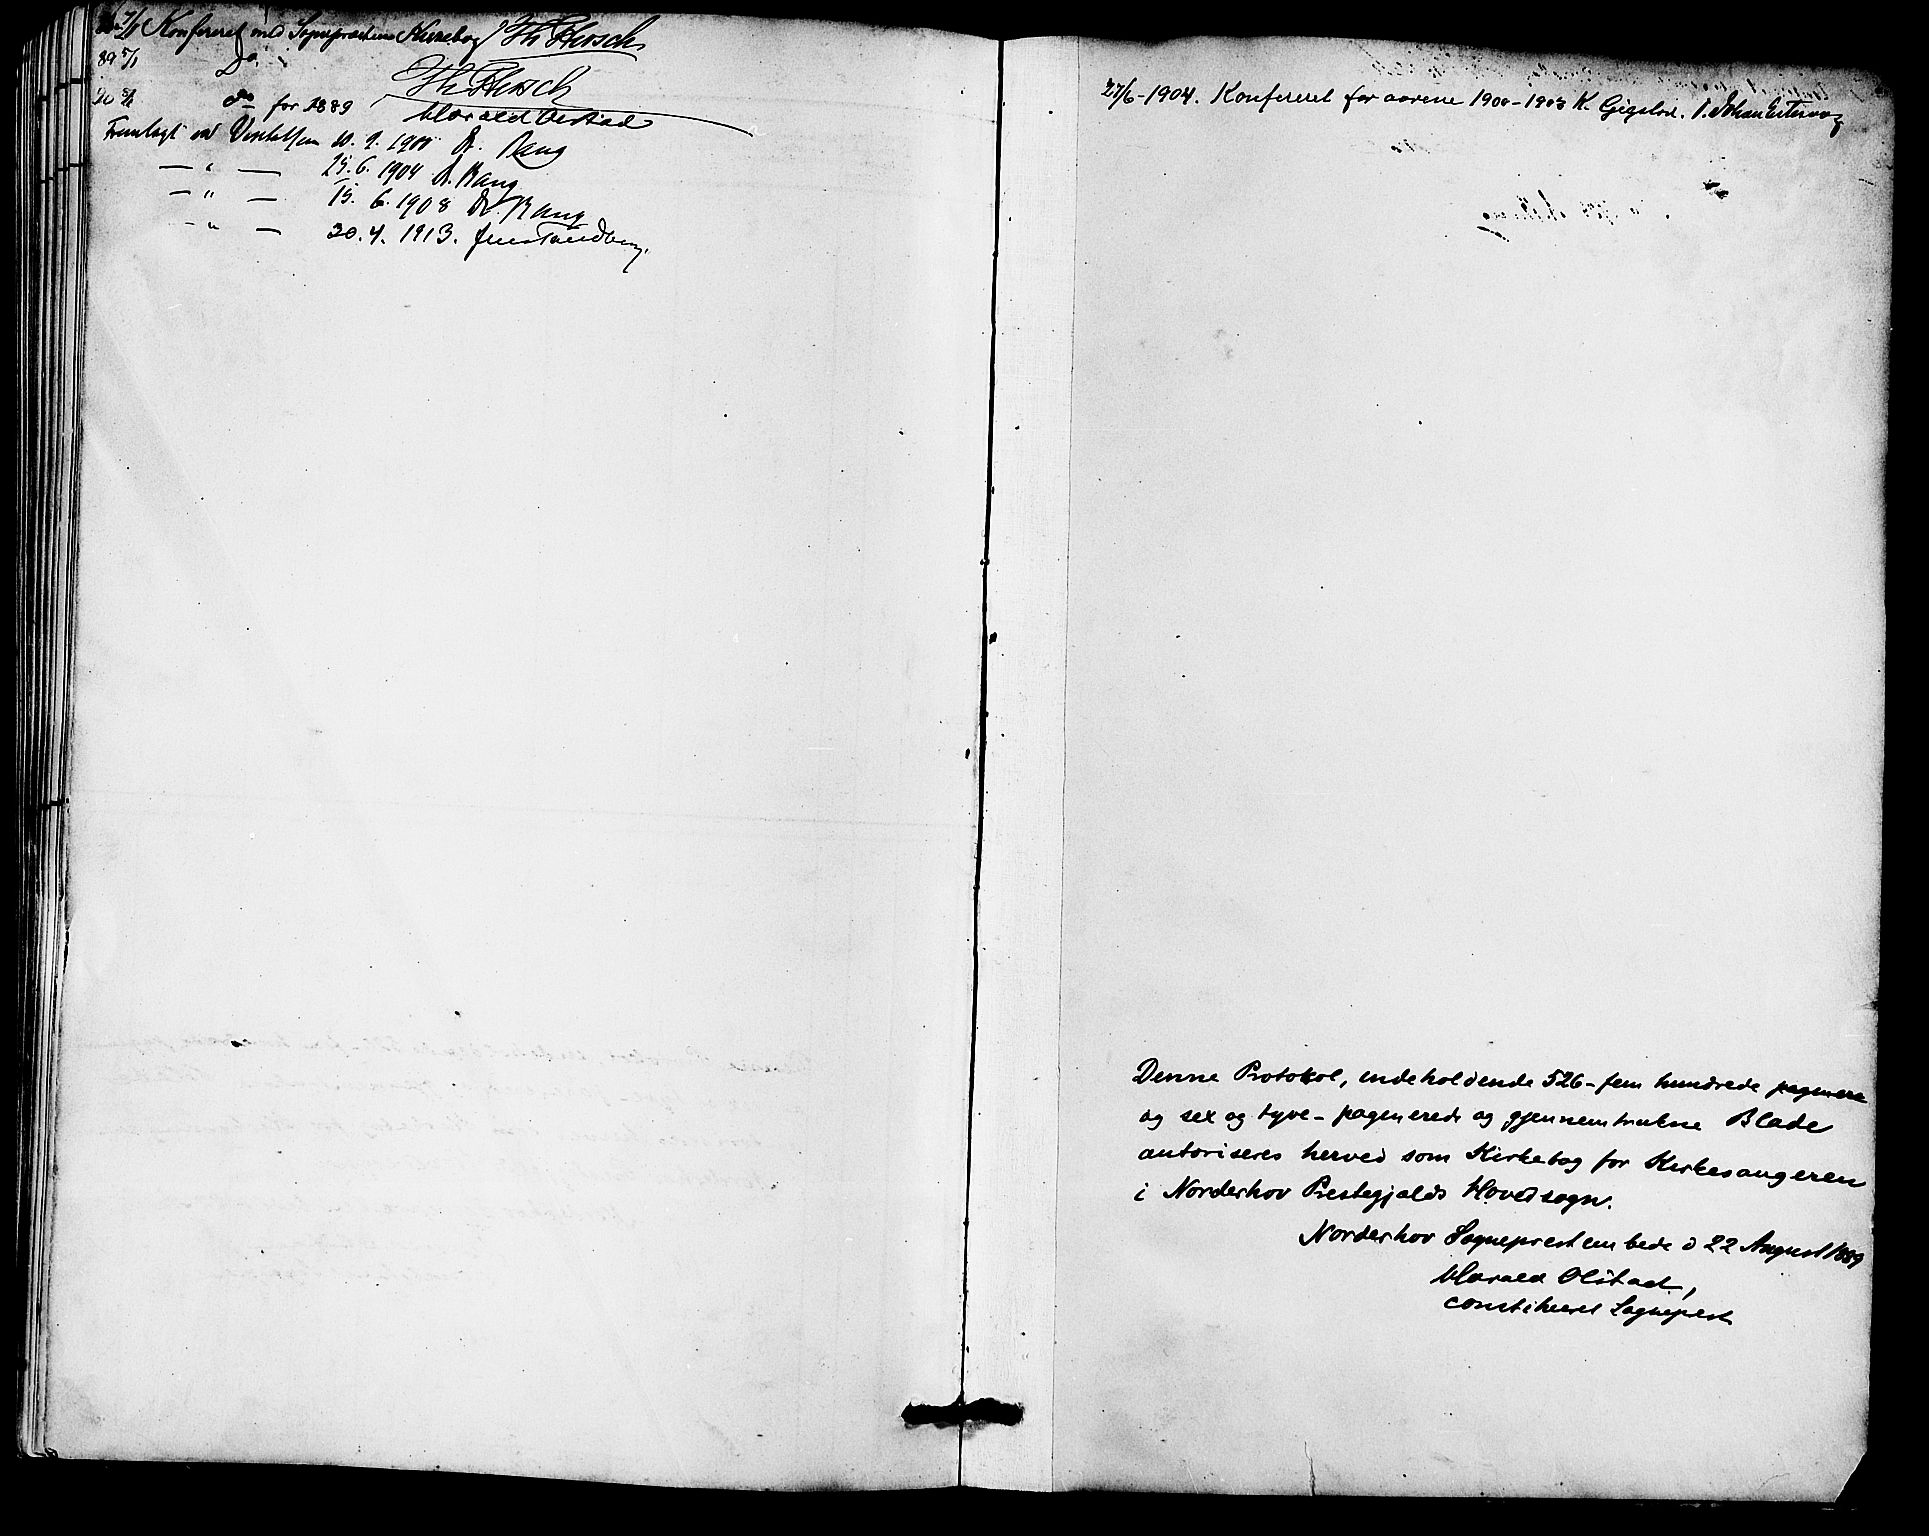 Konfereret med Sognepræstens Kirkebog Th. Hirsch
89 5/1 Do. Th. Hirsch
90 do for 1889 Harald Olstad
Fremlagt ved Visitatsen 10. 9. 1900 A. Bang
— " — 25. 6. 1904 A. Bang
— " — 15. 6. 1908 A. Bang
— " — 20. 4. 1913. Jens Tandberg.
27/6-1904. Konfereret for aarene 1900-1903 K. Gigstad.
Denne Protokol, indeholdende 526-fem hundrede
og sex og tyve- paginerede og gjennemtrukne Blade
autoriseres herved som Kirkebog for Kirkesangeren
i Norderhov Prestegjelds Hovedsogn.
Norderhov Sogneprestembede d 22 August 1889
Harald Olstad,
constitueret Sogneprest